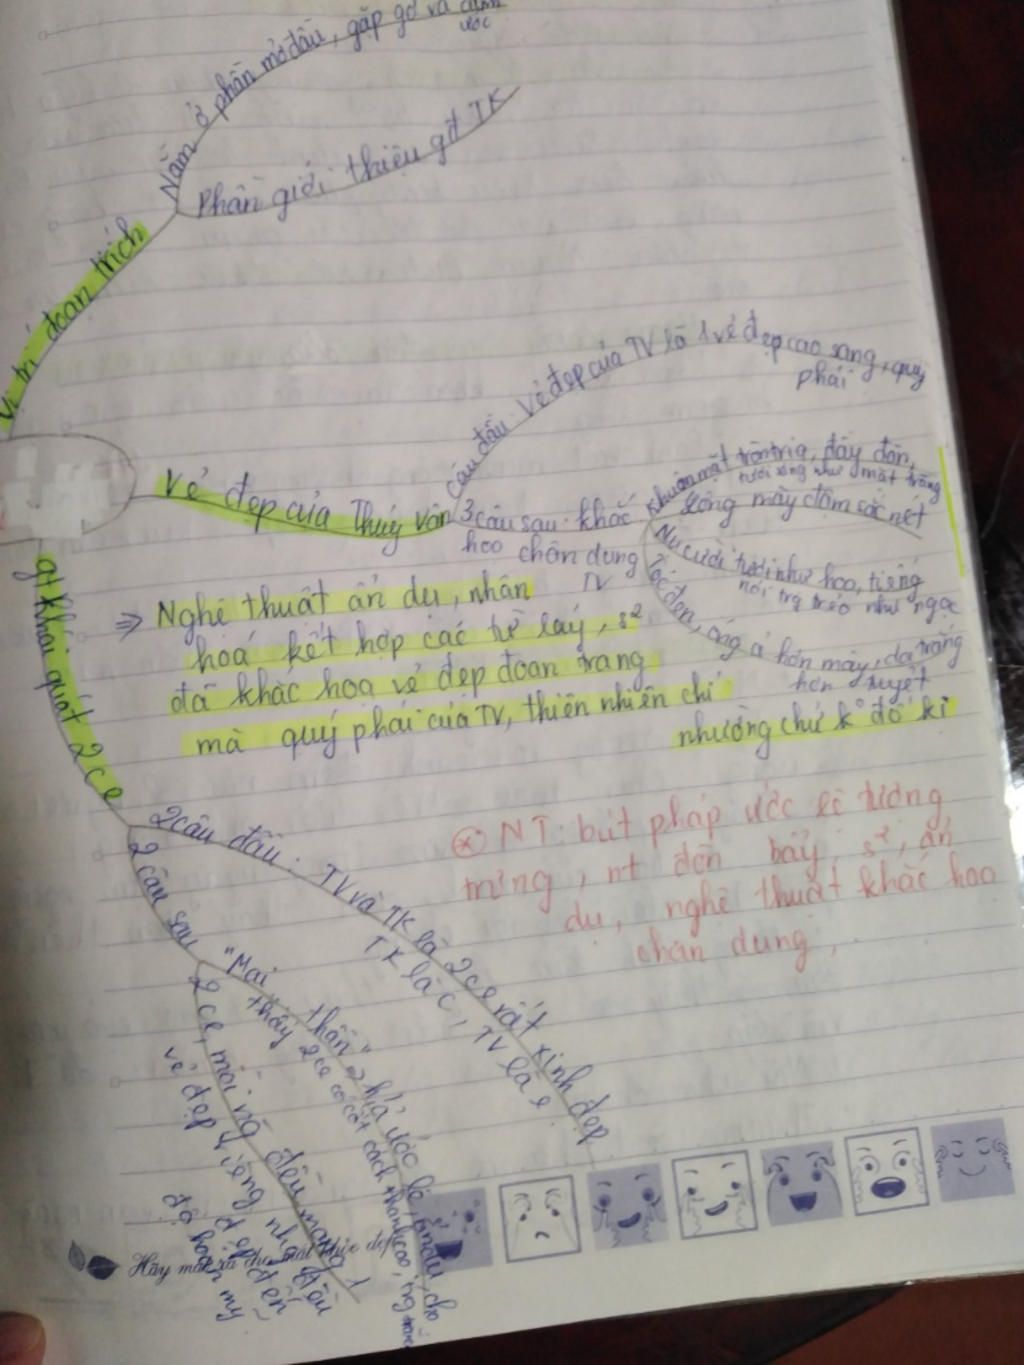 Vị trí đoạn trích
Nằm ở phần mở đầu, gặp gỡ và
ước
Phần giới thiệu gđ TK
Vẻ đẹp của Thúy Vân
Câu đầu: Vẻ đẹp của TV là 1 vẻ đẹp cao sang, quý
phái
3 câu sau: khắc
hoạ chân dung
TV
khuôn mặt tròn trịa, đầy đặn,
tươi sáng như mặt trăng
lông mày đậm sắc nét
Nụ cười tươi như hoa, tiếng
nói trg trẻo như ngọc
Tóc đen, óng ả hơn mây, da trắng
hơn tuyết
=> Nghệ thuật ẩn dụ, nhân
hoá kết hợp các từ láy, s²
đã khắc hoạ vẻ đẹp đoan trang
mà quý phái của TV, thiên nhiên chỉ
nhường chứ k° đố kị
gt khái quát 2 c e
2 câu đầu: TV và TK là 2 ce rất xinh đẹp
TK là c, TV là e
2 câu sau
"Mai thần" hả ước lệ, ẩn dụ, cho
thấy 2 ce có cốt cách thanh cao, trg trắng
2 ce, mỗi ng đều mang 1
vẻ đẹp riêng nhg đều
đẹp đến
độ hoàn mỹ
⊛ NT: bút pháp ước lệ tượng
trưng, nt đòn bẩy, s², ẩn
dụ, nghệ thuật khắc hoạ
chân dung,
Hãy mở ra cho